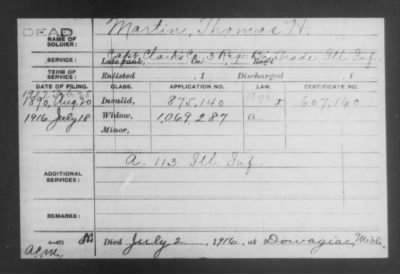 DEAD
NAME OF SOLDIER: Martin, Thomas H.
SERVICE: Capt. Clark's Co. 3 Regt. Brigade Ill. Inf.
Late rank, Co. Reg't
TERM OF SERVICE: Enlisted , 1 Discharged , 1
DATE OF FILING. CLASS. APPLICATION NO. LAW. CERTIFICATE NO.
1890, Aug 20 Invalid, 875,140 607,160
1916, July 18 Widow, 1,069,287 a
Minor,
ADDITIONAL SERVICES: A. 113 Ill. Inf.
REMARKS:
Died July 2, 1916, at Dowagiac, Mich.